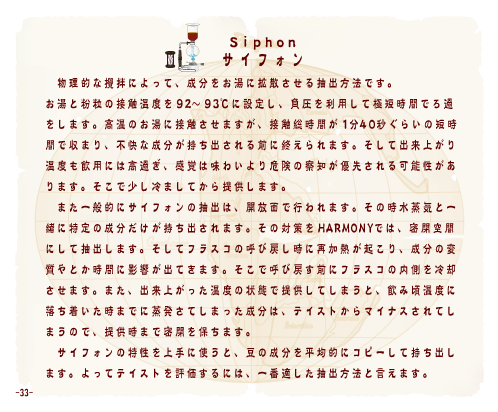 Siphon
サイフォン
物理的な攪拌によって、成分をお湯に拡散させる抽出方法です。
お湯と粉粒の接触温度を92～93℃に設定し、負圧を利用して極短時間でろ過
をします。高温のお湯に接触させますが、接触総時間が1分40秒ぐらいの短時
間で収まり、不快な成分が持ち出される前に終えられます。そして出来上がり
温度も飲用には高過ぎ、感覚は味わいより危険の察知が優先される可能性があ
ります。そこで少し冷ましてから提供します。
また一般的にサイフォンの抽出は、開放面で行われます。その時水蒸気と一
緒に特定の成分だけが持ち出されます。その対策をHARMONYでは、密閉空間
にして抽出します。そしてフラスコの呼び戻し時に再加熱が起こり、成分の変
質やとか時間に影響が出てきます。そこで呼び戻す前にフラスコの内側を冷却
させます。また、出来上がった温度の状態で提供してしまうと、飲み頃温度に
落ち着いた時までに蒸発させてしまった成分は、テイストからマイナスされてし
まうので、提供時まで密閉を保ちます。
サイフォンの特性を上手に使うと、豆の成分を平均的にコピーして持ち出し
ます。よってテイストを評価するには、一番適した抽出方法と言えます。
-33-